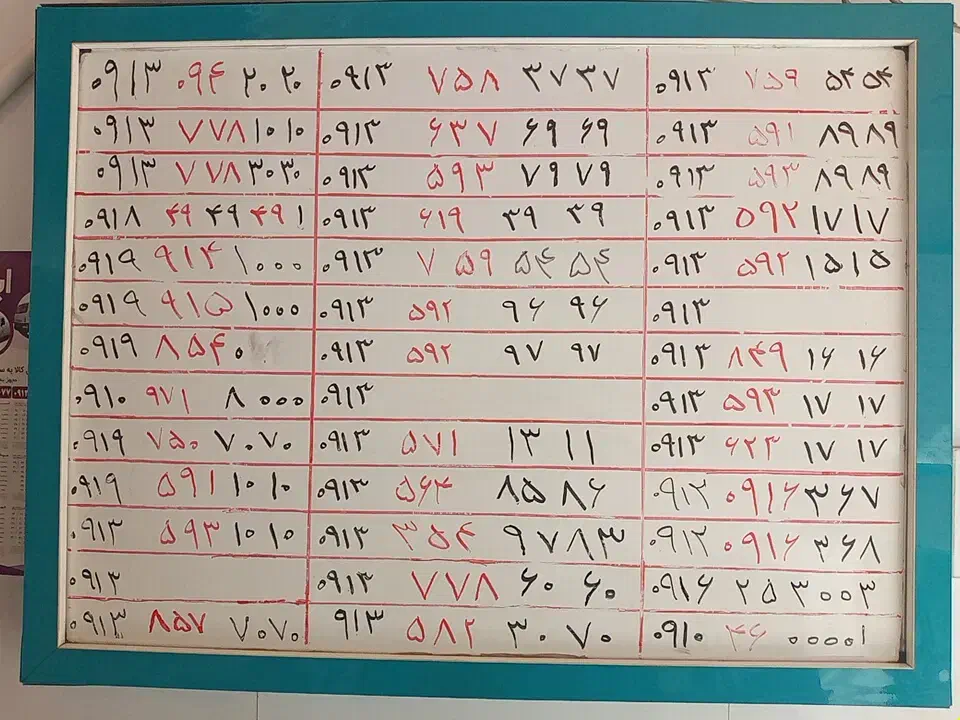 ۰۹۱۳ ۰۹۴ ۲۰۲۰
۰۹۱۳ ۷۵۸ ۳۷۳۷
۰۹۱۳ ۷۵۹ ۵۴۵۴
۰۹۱۳ ۷۷۸ ۱۰۱۰
۰۹۱۳ ۶۳۷ ۶۹ ۶۹
۰۹۱۳ ۵۹۱ ۸۹۸۹
۰۹۱۳ ۷۷۸ ۳۰۳۰
۰۹۱۳ ۵۹۳ ۷۹۷۹
۰۹۱۳ ۵۹۳ ۸۹۸۹
۰۹۱۸ ۴۹ ۴۹ ۴۹ ۱
۰۹۱۳ ۶۱۹ ۳۹ ۳۹
۰۹۱۳ ۵۹۲ ۱۷۱۷
۰۹۱۹ ۹۱۴ ۱۰۰۰
۰۹۱۳ ۷۵۹ ۵۴ ۵۴
۰۹۱۳ ۵۹۲ ۱۵۱۵
۰۹۱۹ ۹۱۵ ۱۰۰۰
۰۹۱۳ ۵۹۲ ۹۶ ۹۶
۰۹۱۳
۰۹۱۹ ۸۵۴۰
۰۹۱۳ ۵۹۲ ۹۷ ۹۷
۰۹۱۳ ۸۴۹ ۱۶ ۱۶
۰۹۱۰ ۹۷۱ ۸۰۰۰
۰۹۱۳
۰۹۱۳ ۵۹۳ ۱۷ ۱۷
۰۹۱۹ ۷۵۰ ۷۰۷۰
۰۹۱۳ ۵۷۱ ۱۳ ۱۱
۰۹۱۳ ۶۲۳ ۱۷ ۱۷
۰۹۱۹ ۵۹۱ ۱۰۱۰
۰۹۱۳ ۵۶۳ ۸۵۸۶
۰۹۱۲ ۰۹۱۶ ۳۶۷
۰۹۱۳ ۵۹۳ ۱۰۱۰
۰۹۱۳ ۳۵۴ ۹۷۸۳
۰۹۱۲ ۰۹۱۶ ۳۶۸
۰۹۱۳
۰۹۱۳ ۷۷۸ ۶۰ ۶۰
۰۹۱۶ ۲۵۳۰۰۳
۰۹۱۳ ۸۵۷ ۷۰۷۰
۹۱۳ ۵۸۲ ۳۰۷۰
۰۹۱۰ ۴۶ ۰۰۰۰۱